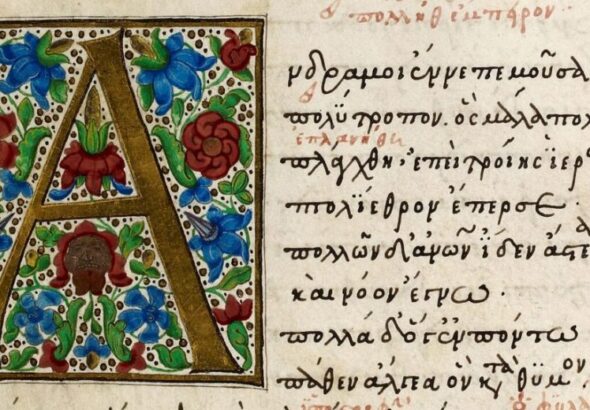 Ανδραμοι ἔννεπε μοῦσα
πολύτροπον. ὃς μάλα πολ
ἐπλανήθη
πλάγχθη· ἐπεὶ τροίης ἱερ
πτολίεθρον ἔπερσε.
πολλῶν δ' ἀνων ἴδεν ἄστε
καὶ νόον ἔγνω.
πολλὰ δ' ὅγ' ἐν πόντω
πάθεν ἄλγεα ὃν κτὰ θυμον